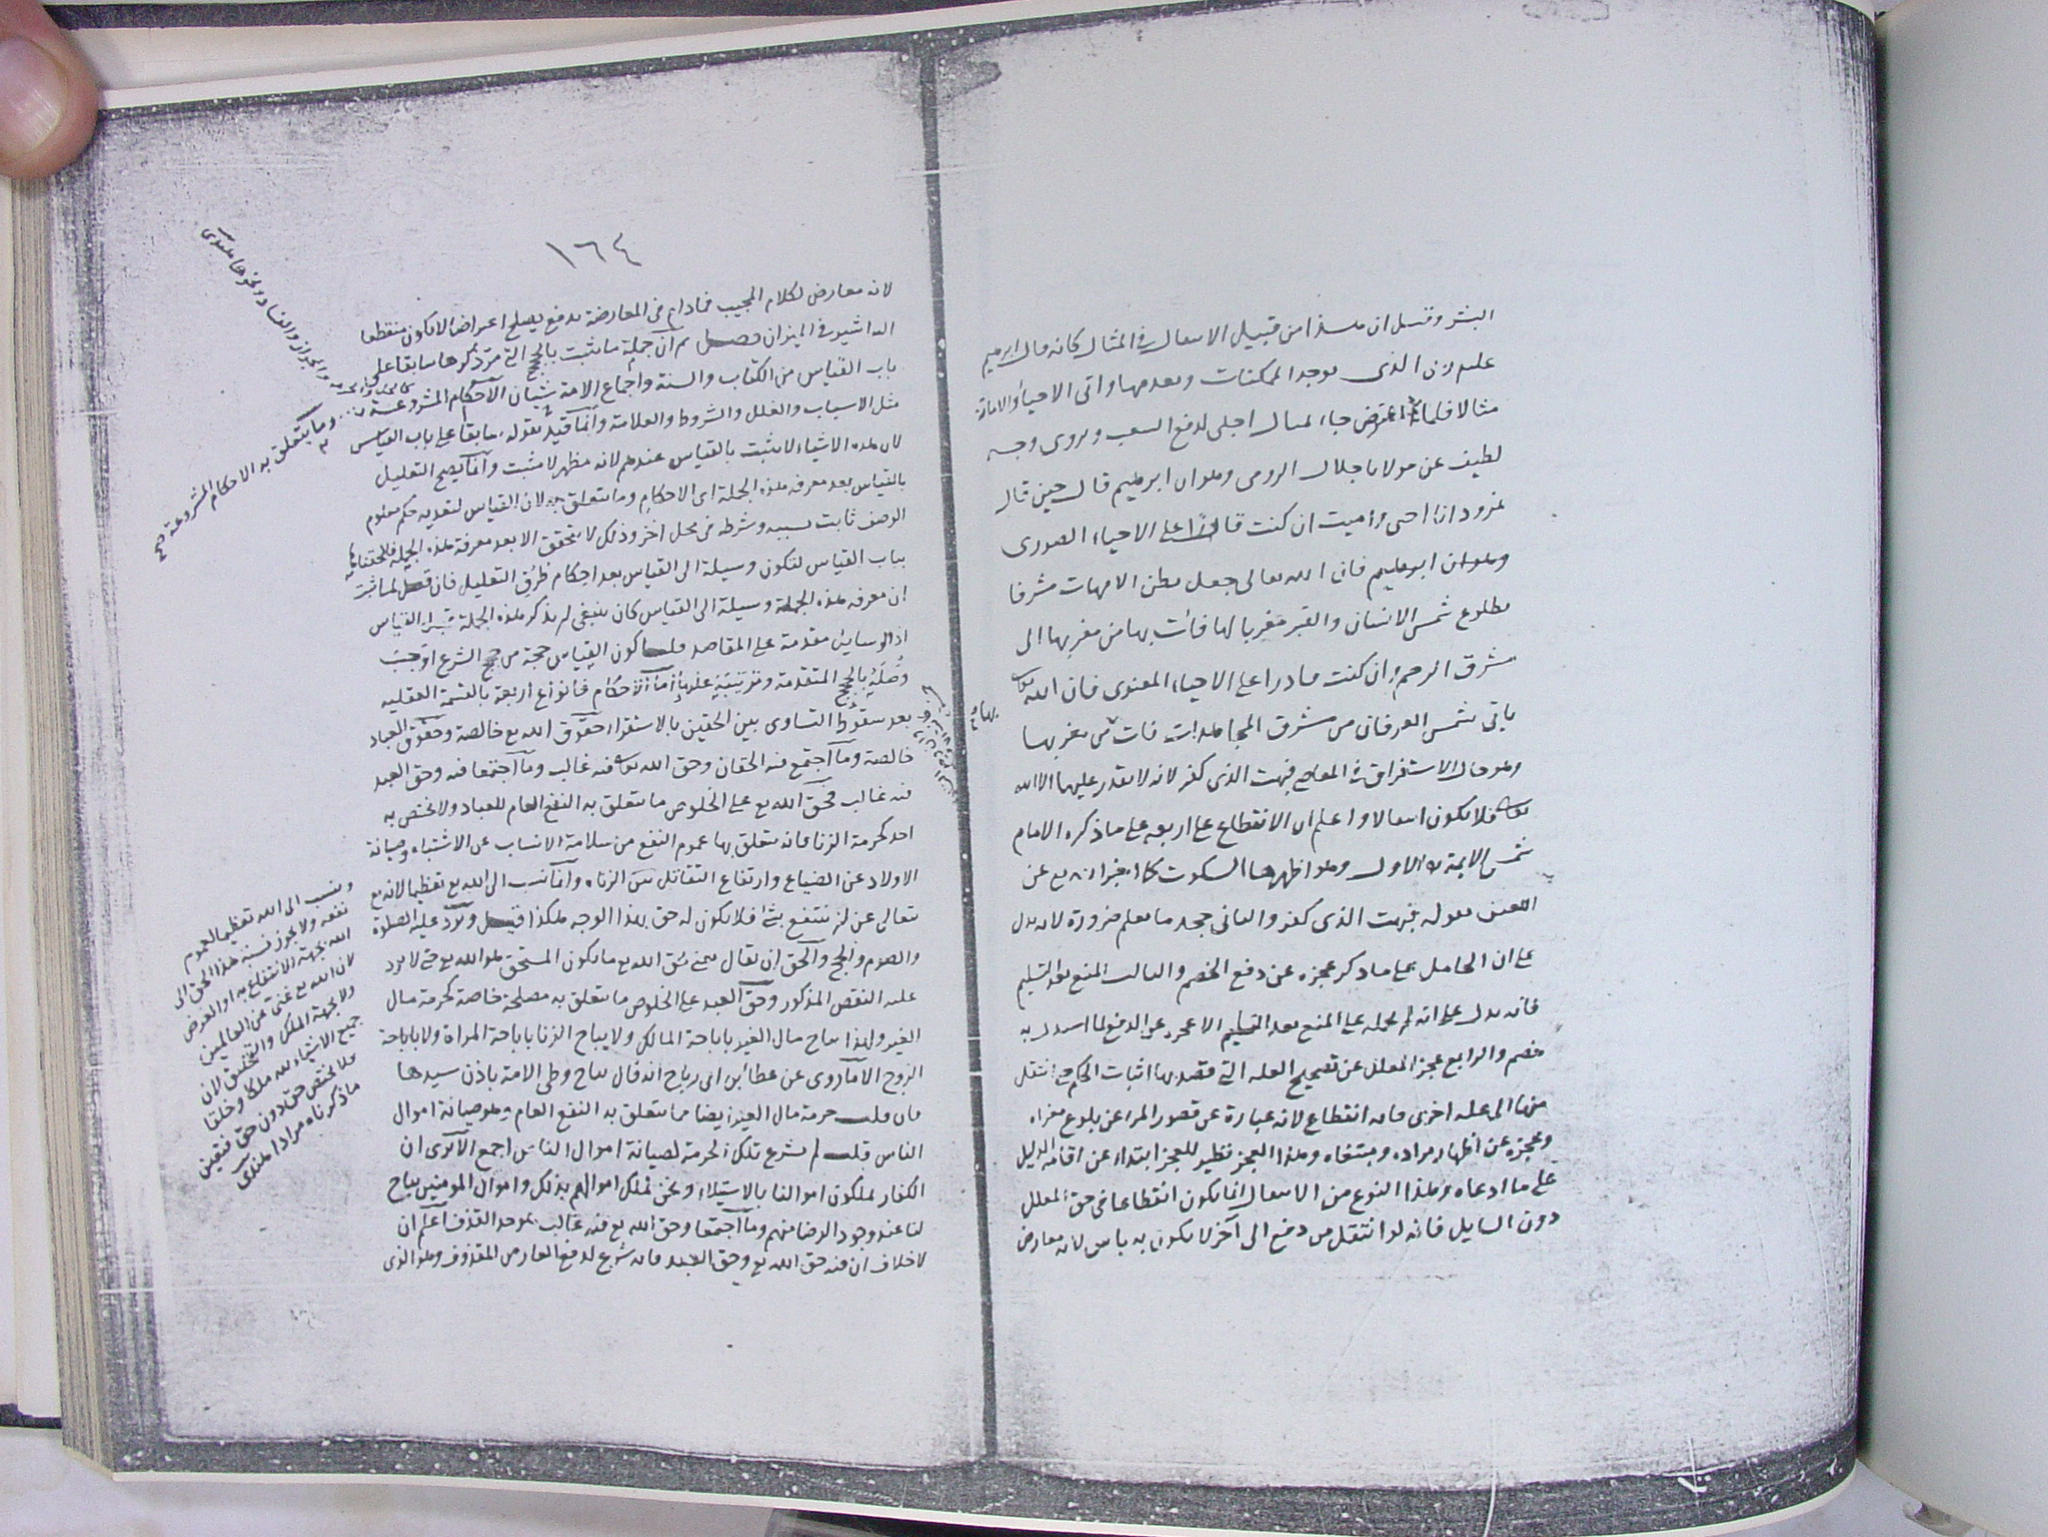 البشر وقيل ان هذا من قبيل الانتقال في المثال كانه قال ابرهيم
عليه ربي الذي يوجد الممكنات ويعدمها واتى الاحياء والاماتة
مثالا فلما اعترض جاء بمثال اجلى لدفع الشغب ويروى وجه
لطيف عن مولانا جلال الرومي وهو ان ابرهيم قال حين قال
نمرود انا احيي واميت ان كنت قادرا على الاحياء الصوري
وهو ان ابرهيم فان الله تعالى جعل بطن الامهات مشرقا
بطلوع شمس الانسان والقبر مغربا لها فات بها من مغربها الى
مشرق الرحم وان كنت قادرا على الاحياء المعنوي فان الله تعالى
ياتي بشمس العرفان من مشرق المجاهدات فات من مغربها
بها
وهو حال الاستغراق في المعاصي فبهت الذي كفر لانه لا يقدر عليها الا الله
تعالى فلا يكون انتقالا واعلم ان الانقطاع على اربعة على ما ذكره الامام
شمس الايمة الاول وهو اظهرها السكوت كما اخبر الله تع عن
اللعين بقوله فبهت الذي كفر والثاني جحد ما يعلم ضرورة لانه يدل
على ان الحامل على ما ذكر عجزه عن دفع الخصم والثالث المنع بعد التسليم
فانه يدل على انه لم يحمله على المنع بعد التسليم الا عجزه عن الدفع لما استدل به
خصم والرابع عجز المعلل عن تصحيح العلة التي قصد بها اثبات الحكم حتى انتقل
منها الى علة اخرى فانه انقطاع لانه عبارة عن قصور المرء عن بلوغ مغزاه
وعجزه عن اظهار مراده ومبتغاه وهذا العجز نظير للعجز ابتداء عن اقامة الدليل
على ما ادعاه وهذا النوع من الانتقال انما يكون انقطاعا في حق المعلل
دون السايل فانه لو انتقل من دفع الى آخر لا يكون به باس لانه معارض
١٦٤
لانه معارض لكلام المجيب فمادام في المعارضة بدفع يصلح اعتراضا لا يكون منقطعا
اليه اشير في الميزان فصل ثم ان جملة ما يثبت بالحجج التي مر ذكرها سابقا على
باب القياس من الكتاب والسنة واجماع الامة شيئان الاحكام المشروعة وما يتعلق به الاحكام المشروعة صح
مثل الاسباب والعلل والشروط والعلامة وانما قيد بقوله سابقا على باب القياس
لان هذه الاشياء لا يثبت بالقياس عندهم لانه مظهر لا مثبت وانما يصح التعليل
بالقياس بعد معرفة هذه الجملة اى الاحكام وما يتعلق به لان القياس لتعدية حكم معلوم
الوصف ثابت بسببه وشرطه في محل اخر وذلك لا يتحقق الا بعد معرفة هذه الجملة فالحقناها
بباب القياس لتكون وسيلة الى القياس بعد احكام طريق التعليل فان قيل لما ثبت
ان معرفة هذه الجملة وسيلة الى القياس كان ينبغي ان يذكر هذه الجملة قبل القياس
اذ الوسايل مقدمة على المقاصد قلنا كون القياس حجة من حجج الشرع اوجبت
وصله بالحجج المتقدمة وترتيبه عليها اما الاحكام فانواع اربعة بالقسمة العقلية
بعد سقوط التساوي بين الحقين بالاستقراء حقوق الله تع خالصة وحقوق العباد
خالصة وما اجتمع فيه الحقان وحق الله تعالى فيه غالب وما اجتمعا فيه وحق العبد
فيه غالب فحق الله تع على الخلوص ما يتعلق به النفع العام للعباد ولا يختص به
احد كحرمة الزنا فانه يتعلق بها عموم النفع من سلامة الانساب عن الاشتباه وصيانة
الاولاد عن الضياع وارتفاع التقاتل بين الزناه وانما نسب الى الله تع تعظيما لانه تع
يتعالى عن ان ينتفع بشئ فلا يكون له حق بهذا الوجه هكذا قيل ويرد عليه الصلوة
والصوم والحج والحق ان يقال معنى حق الله تع ما يكون المستحق هو الله تع حتى لا يرد
عليه النقض المذكور وحق العبد على الخلوص ما يتعلق به مصلحة خاصة كحرمة مال
الغير ولهذا يباح مال الغير باباحة المالك ولا يباح الزنا باباحة المراة ولا باباحة
الزوج الا ما روى عن عطا بن ابى رباح انه قال يباح وطى الامة باذن سيدها
فان قلت حرمة مال الغير ايضا مما يتعلق به النفع العام وهو صيانة اموال
الناس قلت لم يشرع تلك الحرمة لصيانة اموال الناس اجمع الا ترى ان
الكفار يملكون اموالنا بالاستيلاء ونحن نملك اموالهم بذلك واموال المومنين يباح
لنا عند وجود الرضا منهم وما اجتمعا وحق الله تع فيه غالب كحد القذف اعلم ان
لا خلاف ان فيه حق الله تع وحق العبد فانه شرع لدفع العار من المقذوف وهو الذى
والجواز والفساد ونحوها
وينسب الى الله تعظيما لعموم
نفعه ولا يجوز نسبة هذا الحق الى
الله بجهة الانتفاع به او الغرض
لان الله تع غنى عن العالمين
ولا بجهة الملك والتخليق لان
جميع الاشياء لله ملكا وخلقا
فلا يختص حق دون حق فتعين
ما ذكرناه مرادا